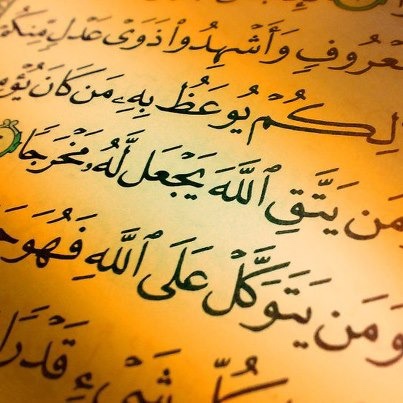 عْرُوفٍ وَأَشْهِدُوا۟ ذَوَىْ عَدْلٍ مِّنكُمْ
لِكُمْ يُوعَظُ بِهِۦ مَن كَانَ يُؤْمِ
وَمَن يَتَّقِ ٱللَّهَ يَجْعَل لَّهُۥ مَخْرَجًا
وَمَن يَتَوَكَّلْ عَلَى ٱللَّهِ فَهُوَ حَ
كُلِّ شَىْءٍ قَدْرًا